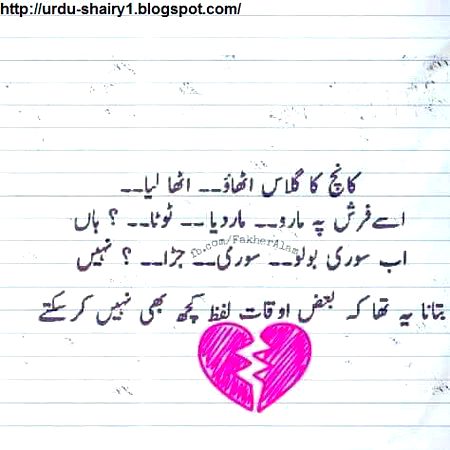 http://urdu-shairy1.blogspot.com/
کانچ کا گلاس اٹھاؤ۔۔ اٹھا لیا۔۔
اسے فرش پہ مارو۔۔ مار دیا۔۔ ٹوٹا۔۔ ؟ ہاں
fb.com/FakherAlam
اب سوری بولو۔۔ سوری۔۔ جڑا۔۔ ؟ نہیں
بتانا یہ تھا کہ بعض اوقات لفظ کچھ بھی نہیں کر سکتے